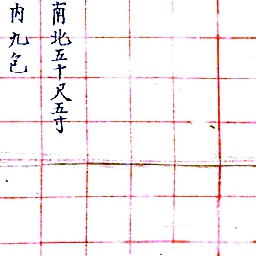 南北五十尺五寸
内九包